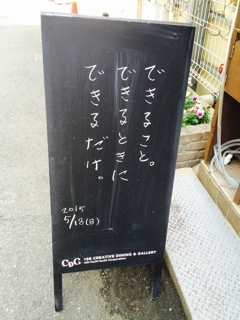 できること。
できるときに
できるだけ。
2015
5/18(月)
CDG 168 CREATIVE DINING & GALLERY